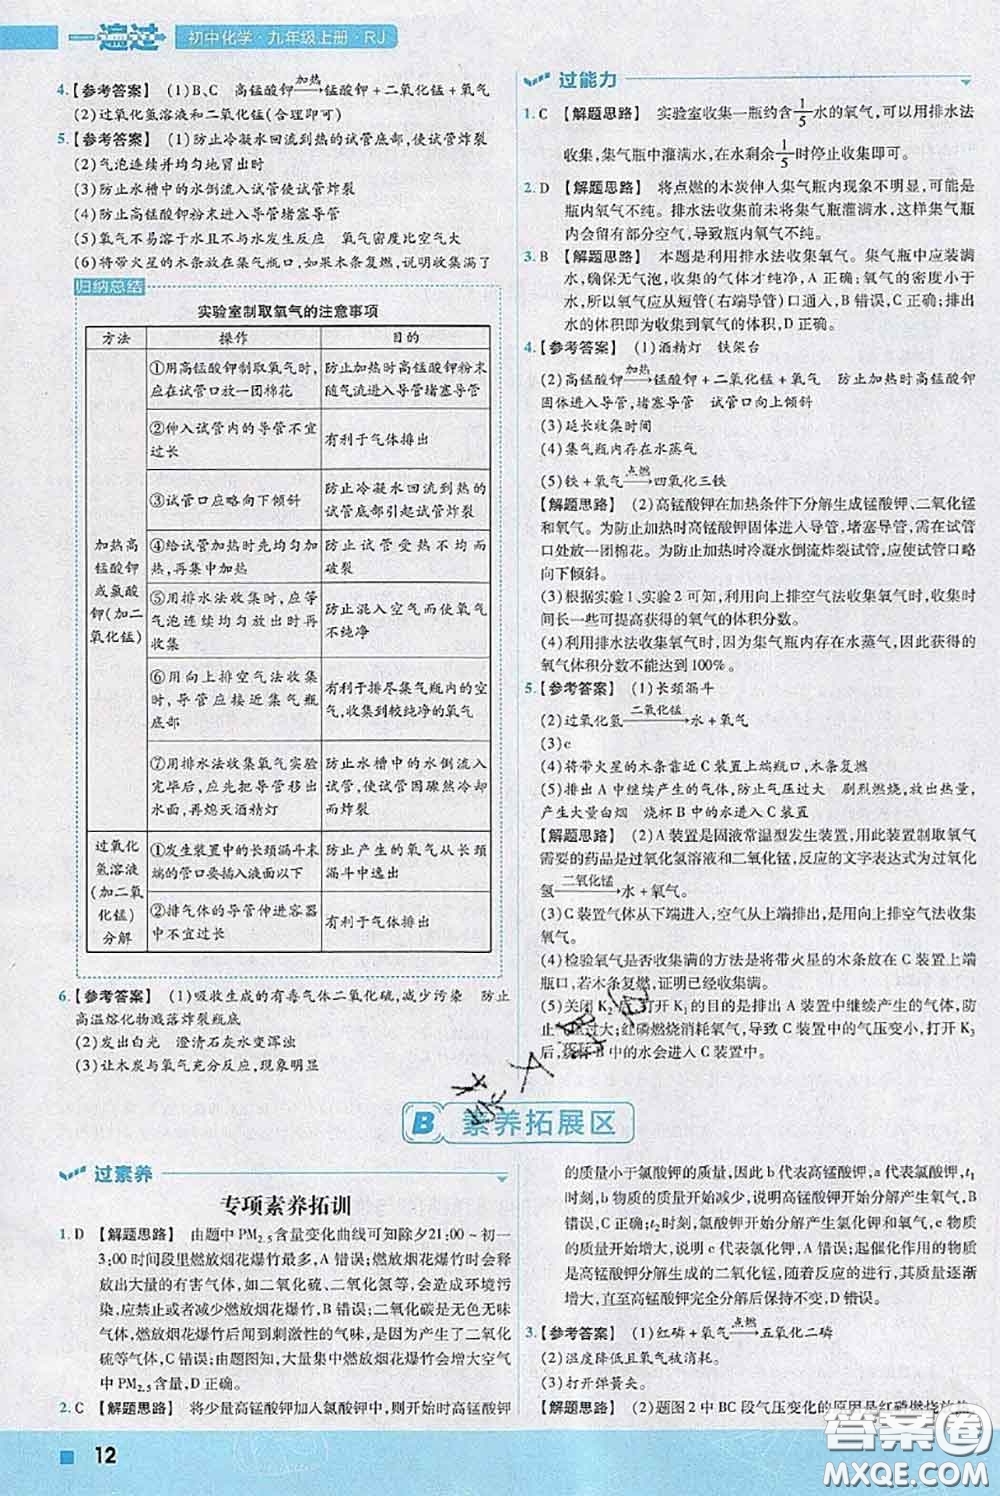 一遍过 初中化学·九年级上册·RJ
4.【参考答案】 (1)B、C 高锰酸钾 加热 锰酸钾+二氧化锰+氧气
(2)过氧化氢溶液和二氧化锰(合理即可)
5.【参考答案】 (1)防止冷凝水回流到热的试管底部,使试管炸裂
(2)气泡连续并均匀地冒出时
(3)防止水槽中的水倒流入试管使试管炸裂
(4)防止高锰酸钾粉末进入导管堵塞导管
(5)氧气不易溶于水且不与水发生反应 氧气密度比空气大
(6)将带火星的木条放在集气瓶口,如果木条复燃,说明收集满了
归纳总结
实验室制取氧气的注意事项
方法 操作 目的
加热高
锰酸钾
或氯酸
钾(加二
氧化锰)
①用高锰酸钾制取氧气时,
应在试管口放一团棉花
防止加热时高锰酸钾粉末
随气流进入导管堵塞导管
②伸入试管内的导管不宜
过长
有利于气体排出
③试管口应略向下倾斜
防止冷凝水回流到热的试
管底部引起试管炸裂
④给试管加热时先均匀加
热,再集中加热
防止试管受热不均而
破裂
⑤用排水法收集时,应等
气泡连续均匀放出时再
收集
防止混入空气而使氧气
不纯净
⑥用向上排空气法收集
时,导管应接近集气瓶
底部
有利于排尽集气瓶内的空
气,收集到较纯净的氧气
⑦用排水法收集氧气实验
完毕后,应先把导管移出
水面,再熄灭酒精灯
防止水槽中的水倒流入
试管,使试管因骤然冷却
而炸裂
过氧化
氢溶液
(加二氧
化锰)
分解
①发生装置中的长颈漏斗末
端的管口要插入液面以下
防止产生的氧气从长颈
漏斗中逸出
②排气体的导管伸进容器
中不宜过长
有利于氧气导出
6.【参考答案】 (1)吸收生成的有毒气体二氧化硫,减少污染 防止
高温熔化物溅落炸裂瓶底
(2)发出白光 澄清石灰水变浑浊
(3)让木炭与氧气充分反应,现象明显
过能力
1. C 【解题思路】 实验室收集一瓶约含1/5水的氧气,可以用排水法
收集,集气瓶中灌满水,在水剩余1/5时停止收集即可。
2. D 【解题思路】 将点燃的木炭伸入集气瓶内现象不明显,可能是
瓶内氧气不纯。排水法收集前未将集气瓶灌满水,这样集气瓶
内会留有部分空气,导致瓶内氧气不纯。
3. B 【解题思路】 本题是利用排水法收集氧气。集气瓶中应装满
水,确保无气泡,收集的气体才纯净,A 正确;氧气的密度小于
水,所以氧气应从短管(右端导管)口通入,B 错误,C 正确;排出
水的体积即为收集到氧气的体积,D 正确。
4.【参考答案】 (1)酒精灯 铁架台
(2)高锰酸钾 加热 锰酸钾+二氧化锰+氧气 防止加热时高锰酸钾
固体进入导管,堵塞导管 试管口向上倾斜
(3)延长收集时间
(4)集气瓶内存在水蒸气
(5)铁+氧气 点燃 四氧化三铁
【解题思路】 (2)高锰酸钾在加热条件下分解生成锰酸钾、二氧化锰
和氧气。为防止加热时高锰酸钾固体进入导管,堵塞导管,需在试管
口处放一团棉花。为防止加热时冷凝水倒流炸裂试管,应使试管口略
向下倾斜。
(3)根据实验1、实验2可知,利用向上排空气法收集氧气时,收集时
间长一些可提高获得的氧气的体积分数。
(4)利用排水法收集氧气时,因为集气瓶内存在水蒸气,因此获得的
氧气体积分数不能达到100%。
5.【参考答案】 (1)长颈漏斗
(2)过氧化氢 二氧化锰 水+氧气
(3)c
(4)将带火星的木条靠近 C 装置上端瓶口,木条复燃
(5)排出 A 中继续产生的气体,防止气压过大 剧烈燃烧,放出热量,
产生大量白烟 烧杯 B 中的水进入 C 装置
【解题思路】 (2)A 装置是固液常温型发生装置,用此装置制取氧气
需要的药品是过氧化氢溶液和二氧化锰,反应的文字表达式为过氧化
氢 二氧化锰 水+氧气。
(3)C 装置气体从下端进入,空气从上端排出,是用向上排空气法收集
氧气。
(4)检验氧气是否收集满的方法是将带火星的木条放在 C 装置上端
瓶口,若木条复燃,证明已经收集满。
(5)关闭 K2后,打开 K1的目的是排出 A 装置中继续产生的气体,防
止气压过大;红磷燃烧消耗氧气,导致 C 装置中的气压变小,打开 K3
后,烧杯 B 中的水会进入 C 装置中。
B 素养拓展区
过素养
专项素养拓训
1. D 【解题思路】 由题中 PM2.5含量变化曲线可知除夕21:00~初一
3:00时间段里燃放烟花爆竹最多,A 错误;燃放烟花爆竹时会释
放出大量的有害气体,如二氧化硫、二氧化氮等,会造成环境污
染,应禁止或者减少燃放烟花爆竹,B 错误;二氧化碳是无色无味
气体,而燃放烟花爆竹后闻到刺激性的气味,是因为产生了二氧化
硫等气体,C 错误;由题图知,大量集中燃放烟花爆竹会增大空气
中 PM2.5含量,D 正确。
2. C 【解题思路】 将少量高锰酸钾加入氯酸钾中,则开始时高锰酸钾
的质量小于氯酸钾的质量,因此 b 代表高锰酸钾,a 代表氯酸钾,t1
时刻,b 物质的质量开始减少,说明高锰酸钾开始分解产生氧气,故
b 代表高锰酸钾;t2时刻,氯酸钾开始分解产生氧气,而氧气的质量
开始增大,说明 c 代表氧气,B 错误;起催化作用的物质
是高锰酸钾分解生成的二氧化锰,随着反应的进行,其质量逐渐
增大,直至高锰酸钾完全分解后保持不变,D 错误。
3.【参考答案】 (1)红磷+氧气 点燃 五氧化二磷
(2)温度降低且氧气被消耗。
(3)打开弹簧夹。
【解题思路】 (2)题图2中 BC 段气压变化的原因是红磷燃烧放热
12
答案圈
MXQE.COM